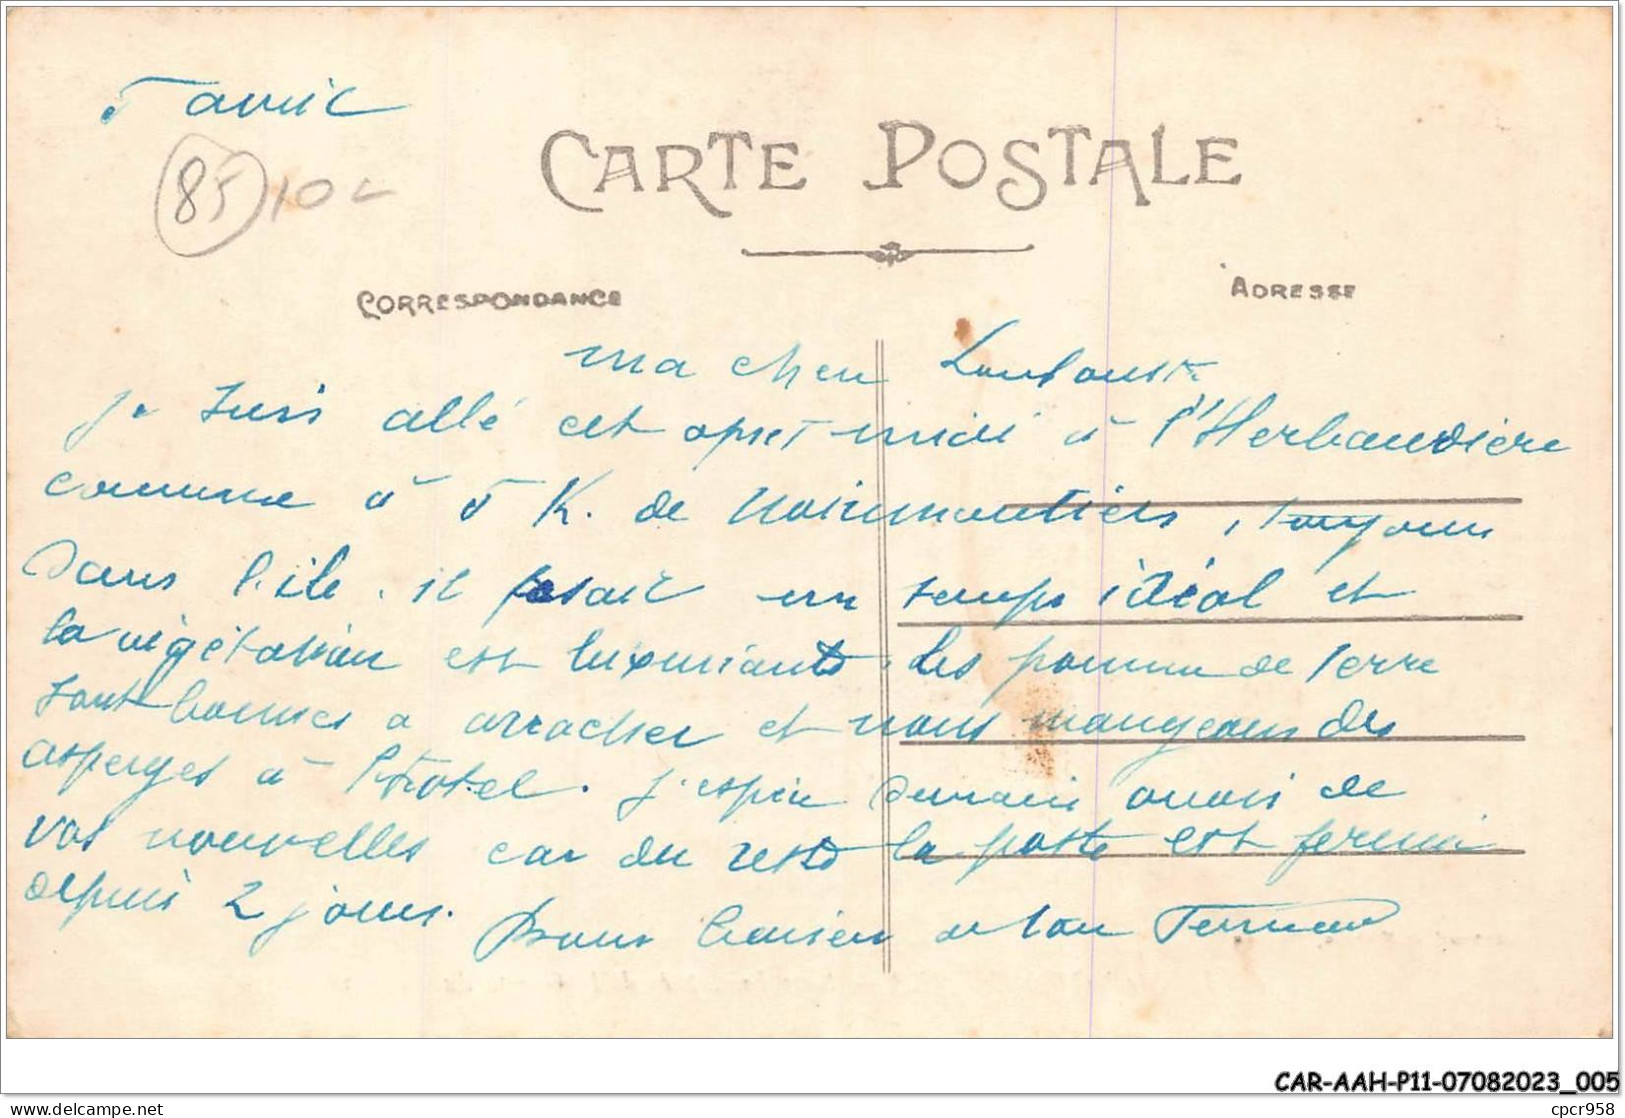 5 avril
85 10
CARTE POSTALE
CORRESPONDANCE
ADRESSE
ma cher
je suis allé cet apret midi à l'Herbaudière
commune à 5 K. de Noirmoutiers, toujours
dans l'ile. il fesait un temps idéal et
la végétation est luxuriante. les pomme de terre
sont bonnes a arracher et nous mangeons des
asperges à l'hotel. J'espère demain avoir de
vos nouvelles car du reste la poste est fermée
depuis 2 jours. bons baisers a tous
CAR-AAH-P11-07082023_005
www.delcampe.net
cpcr958